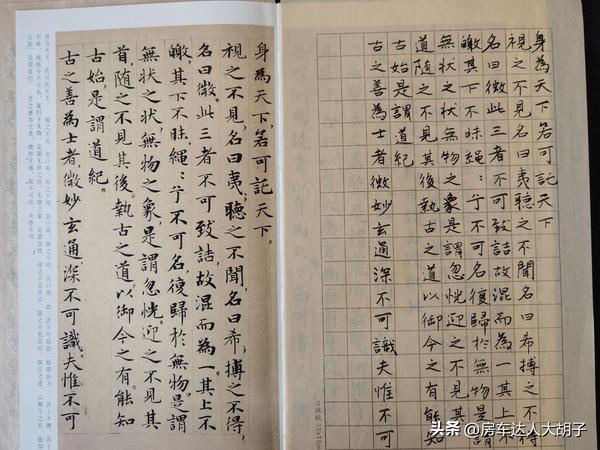 身為天下，若可託天下。
視之不見，名曰夷，聽之不聞，名曰希，搏之不得，
名曰微，此三者不可致詰，故混而為一，其上不
皦，其下不昧，繩々兮不可名，復歸於無物。是謂
無狀之狀，無物之象，是謂忽恍。迎之不見其
首，隨之不見其後。執古之道，以御今之有，能知
古始，是謂道紀。
古之善為士者，微妙玄通，深不可識。夫惟不可
身為天下若可託天下
視之不見名曰夷聽之不聞名曰希搏之不得
名曰微此三者不可致詰故混而為一其上不
皦其下不昧繩々兮不可名復歸於無物是謂
無狀之狀無物之象是謂忽恍迎之不見其
首隨之不見其後執古之道以御今之有能知
古始是謂道紀
古之善為士者微妙玄通深不可識夫惟不可
头条 @房车达人大胡子